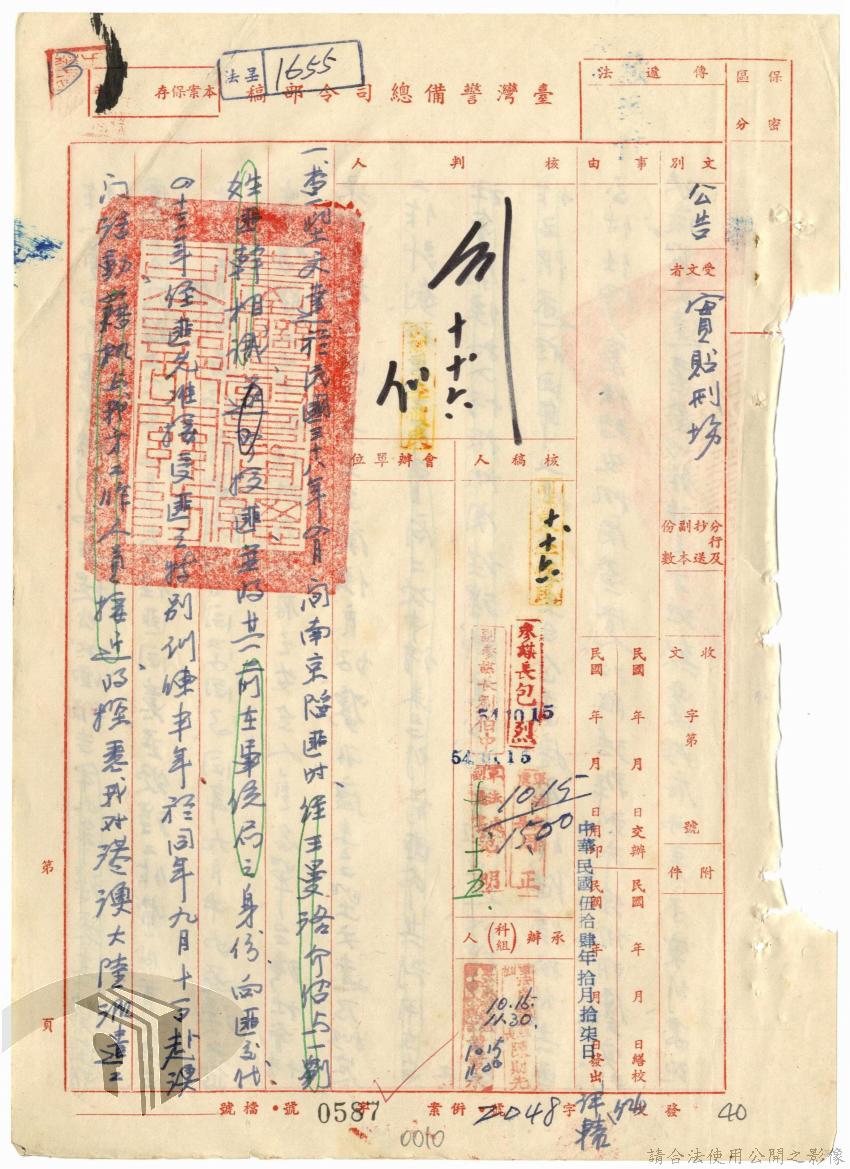 保密
區分
傳遞法
臺灣警備總司令部稿
本案保存
呈法
1655
3
文別
公告
受文者
實貼刑場
事由
核判人
十、十六
分行及抄送副本份數
核稿人
會辦單位
十、十六
參謀長包烈
54.10.15
54.10.15
10.15
1500
十、十五
承辦(科組)人
10.15
11.30
10.15
11.00
收文
字第
號
附件
民國 年 月 日交辦
民國 年 月 日用印
民國 年 月 日繕校
民國 年 月 日發出
中華民國伍拾肆年拾月拾柒日
於民國三十八年四月間南京陷匪時、經王曼洛介紹與一劉
姓匪幹相識、投匪並以其前在軍統局之身份、向匪交代
四十三年經匪允准接受匪工特別訓練半年、於同年九月十一日赴澳
門活動、藉機與我方工作人員接近、以探悉我對港澳大陸派遣工
第
頁
發文
字
號
2048
術案
0587
號
檔號
0010
40
請合法使用公開之影像